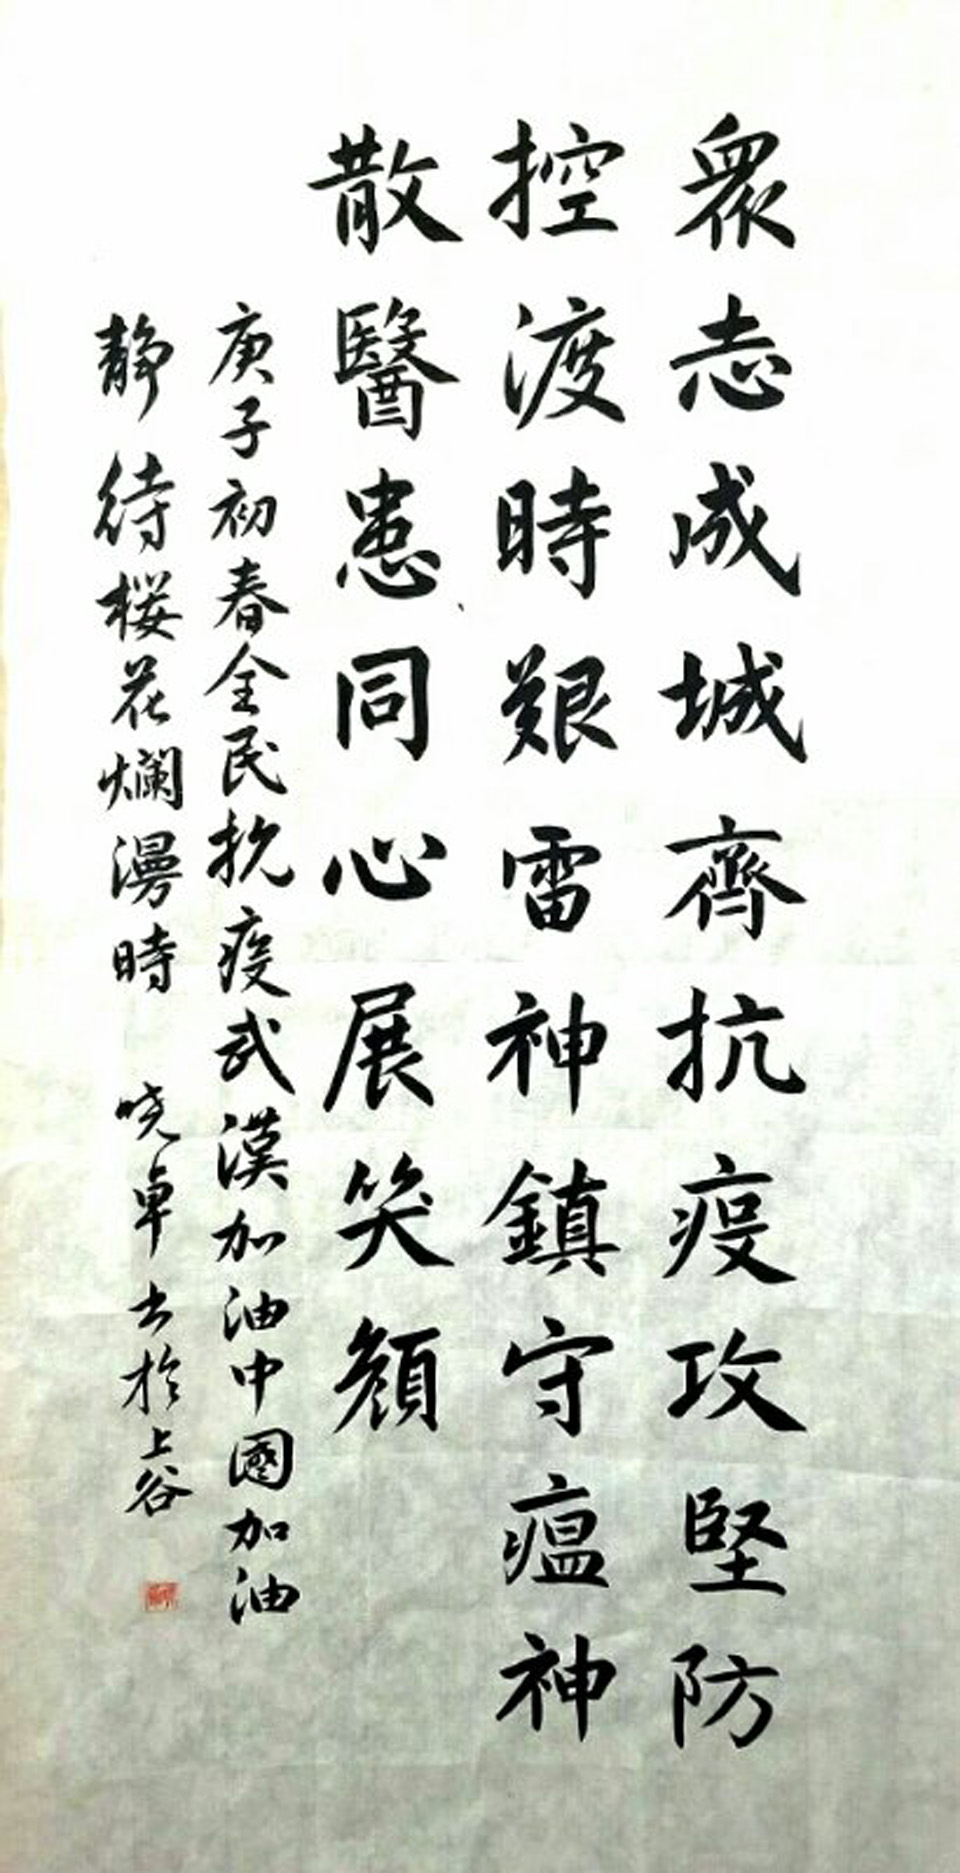 眾志成城齊抗疫攻堅防
控渡時艱雷神鎮守瘟神
散醫患同心展笑顏
庚子初春全民抗疫武漢加油中國加油
靜待桜花爛漫時 曉卓书於上谷